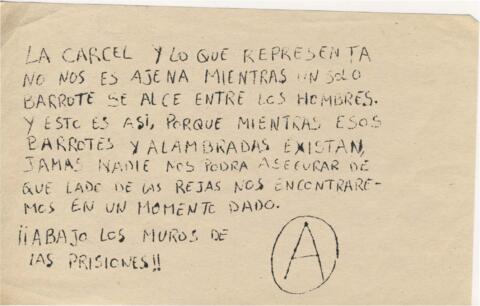 LA CARCEL Y LO QUE REPRESENTA
NO NOS ES AJENA MIENTRAS UN SOLO
BARROTE SE ALCE ENTRE LOS HOMBRES.
Y ESTO ES ASI, PORQUE MIENTRAS ESOS
BARROTES Y ALAMBRADAS EXISTAN,
JAMAS NADIE NOS PODRA ASEGURAR DE
QUE LADO DE LAS REJAS NOS ENCONTRARE-
MOS EN UN MOMENTO DADO.
¡¡ABAJO LOS MUROS DE
LAS PRISIONES!!
A